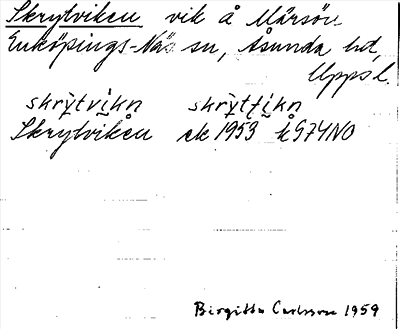 Skrytviken vik å Märsön
Enköpings-Näs sn, Åsunda hd,
Uppsl.
skrỳtvikn skrỳtfikn
Skrytviken ek 1953 h 574NO
Birgitta Carlsson 1959